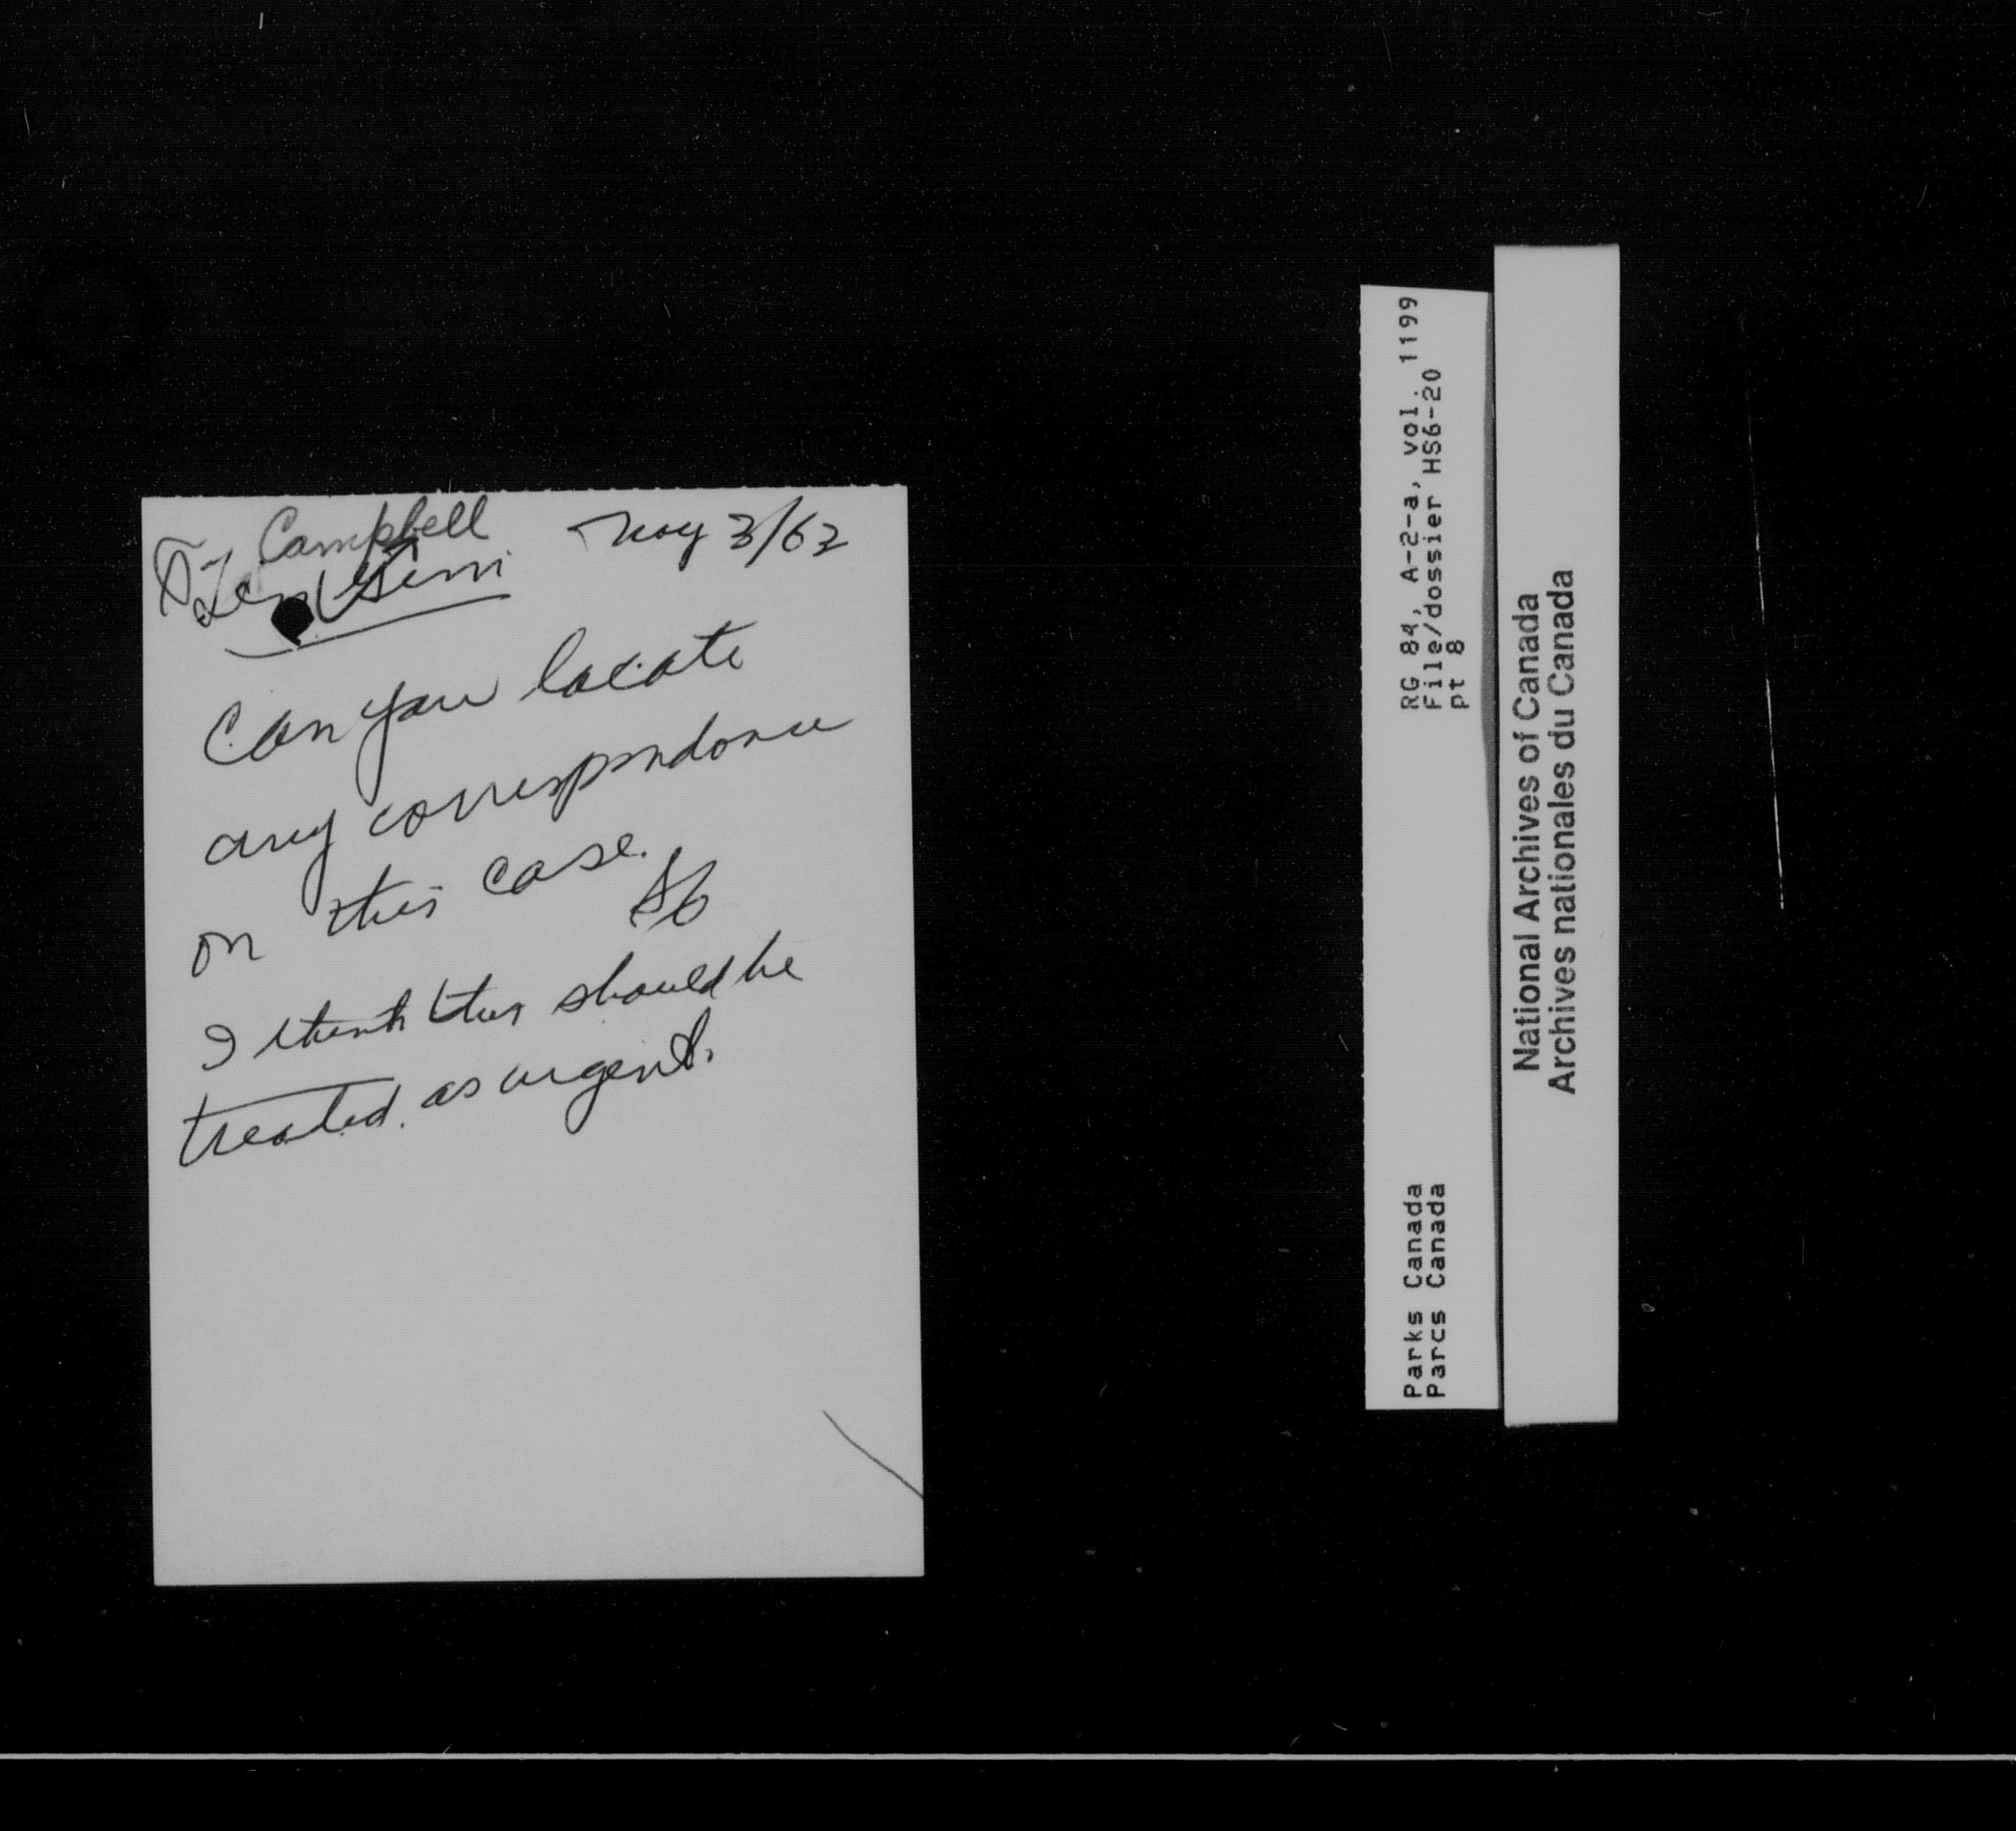 Campbell
May 3/62
Can you locate
any correspondence
on this case.
I think this should be
treated as urgent.
RG 84, A-2-a, vol. 1199
File/dossier HS6-20
pt 8
Parks Canada
Parcs Canada
National Archives of Canada
Archives nationales du Canada